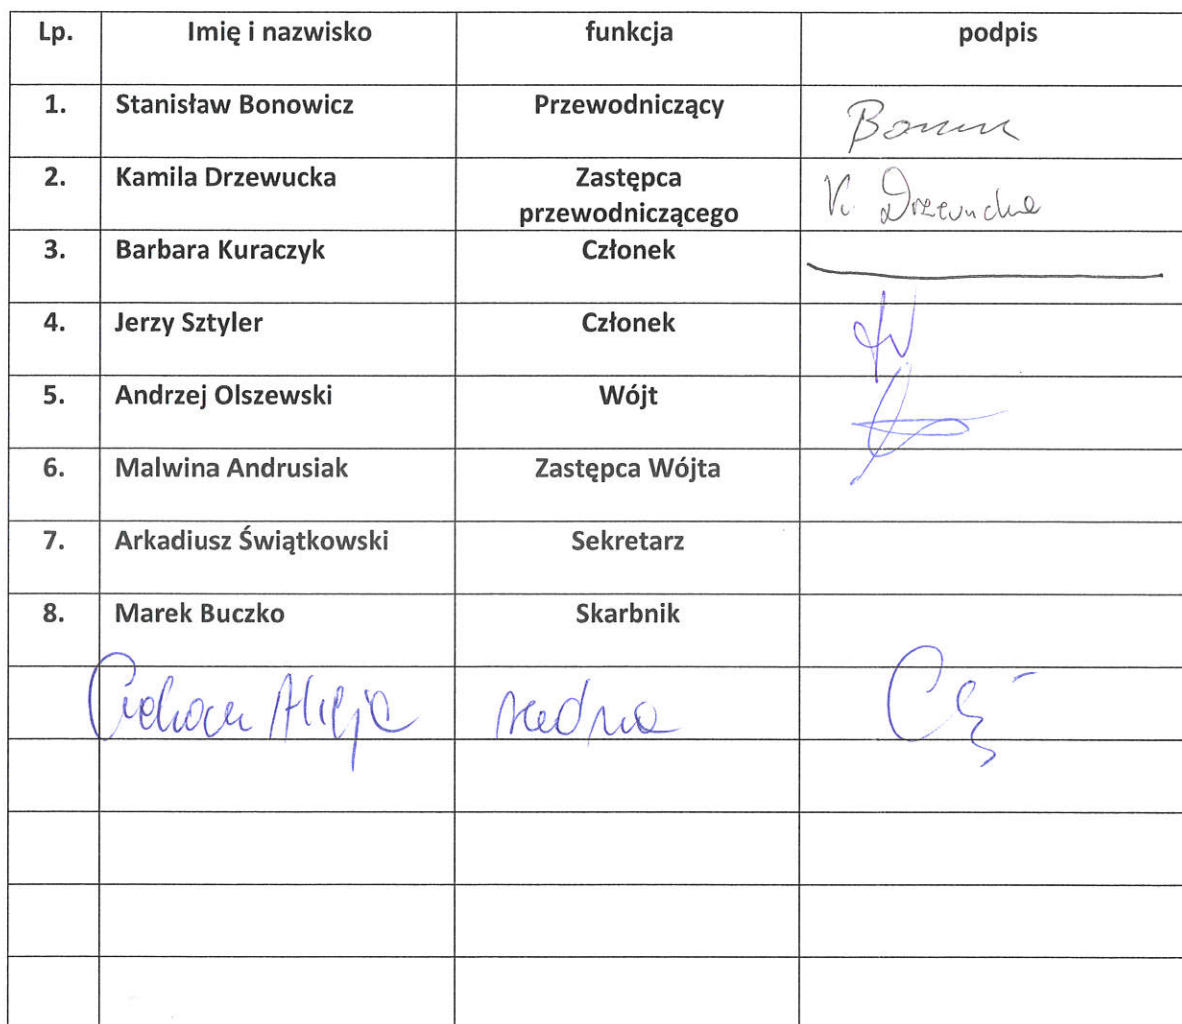 Lp. Imię i nazwisko funkcja podpis
1. Stanisław Bonowicz Przewodniczący
2. Kamila Drzewucka Zastępca
przewodniczącego K. Drzewucka
3. Barbara Kuraczyk Członek
4. Jerzy Sztyler Członek
5. Andrzej Olszewski Wójt
6. Malwina Andrusiak Zastępca Wójta
7. Arkadiusz Świątkowski Sekretarz
8. Marek Buczko Skarbnik
Alicja radna